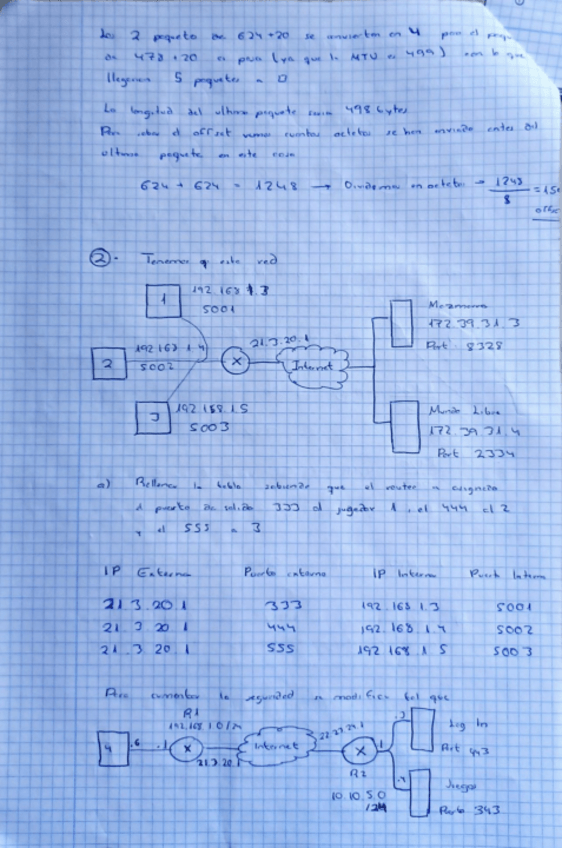 Los 2 paquetes de 624+20 se convierten en 4 pero el
de 478+20 si pasa (ya que la MTU es 499) con lo que
llegarian 5 paquetes a D
La longitud del ultimo paquete seria 498 bytes
Para saber el offset vemos cuantos octetos se han enviado antes del
ultimo paquete en este caso
624 + 624 = 1248 → Dividimos en octetos → 1248/8 = 15
offse
2. Tenemos q esta red
1 192.168.1.3
5001
2 192.168.1.4
5002
3 192.168.1.5
5003
X 21.3.20.1
Internet
172.39.31.3
Port 8328
Mundo Libre
172.39.31.4
Port 2334
a) Rellena la tabla sabiendo que el router a asignado
el puerto de salida 333 al jugador 1, el 444 al 2
y el 555 a 3
IP Externa Puerto externo IP Interna Puerto Interno
21.3.20.1 333 192.168.1.3 5001
21.3.20.1 444 192.168.1.4 5002
21.3.20.1 555 192.168.1.5 5003
Para aumentar la seguridad se modifica tal que
R1
192.168.1.0/24
4 .6 .1 X 21.3.20.1 Internet X .1
R2
10.10.5.0
/24
.3 Log In
Port 443
.4 Juegos
Puerto 343